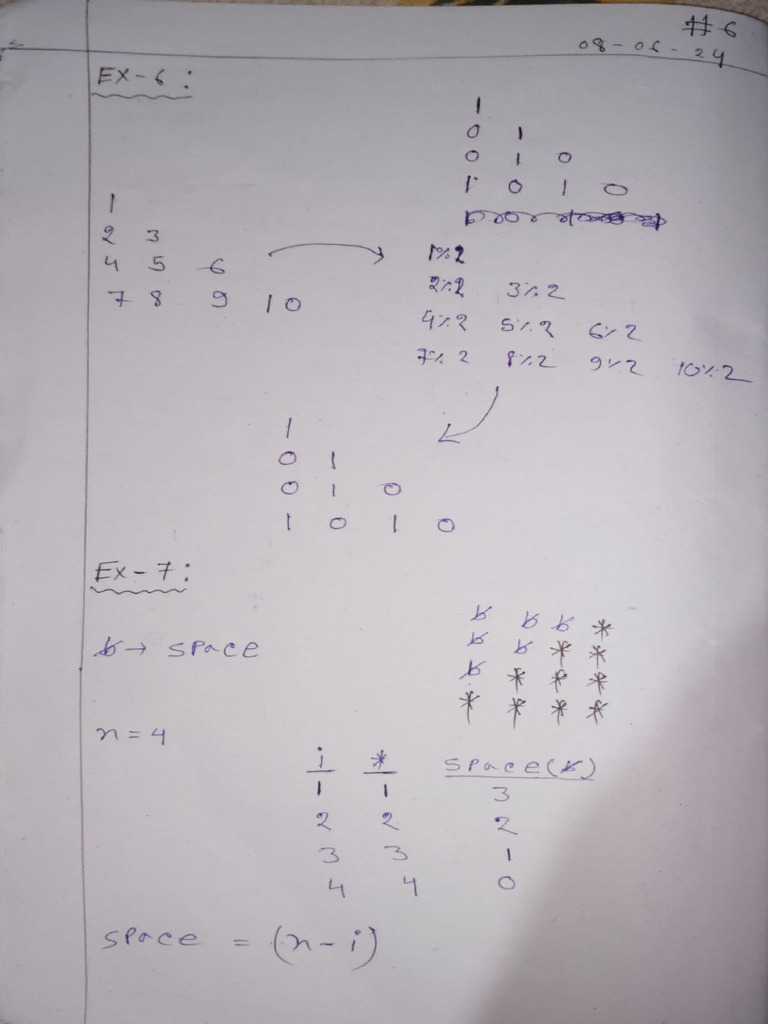 #6
08-06-24
EX-6:
1
0 1
0 1 0
1 0 1 0
1
2 3
4 5 6
7 8 9 10
1%2
2%2 3%2
4%2 5%2 6%2
7%2 8%2 9%2 10%2
1
0 1
0 1 0
1 0 1 0
EX-7:
b b b *
b b * *
b * * *
* * * *
b → space
n=4
i * space(b)
1 1 3
2 2 2
3 3 1
4 4 0
space = (n-i)